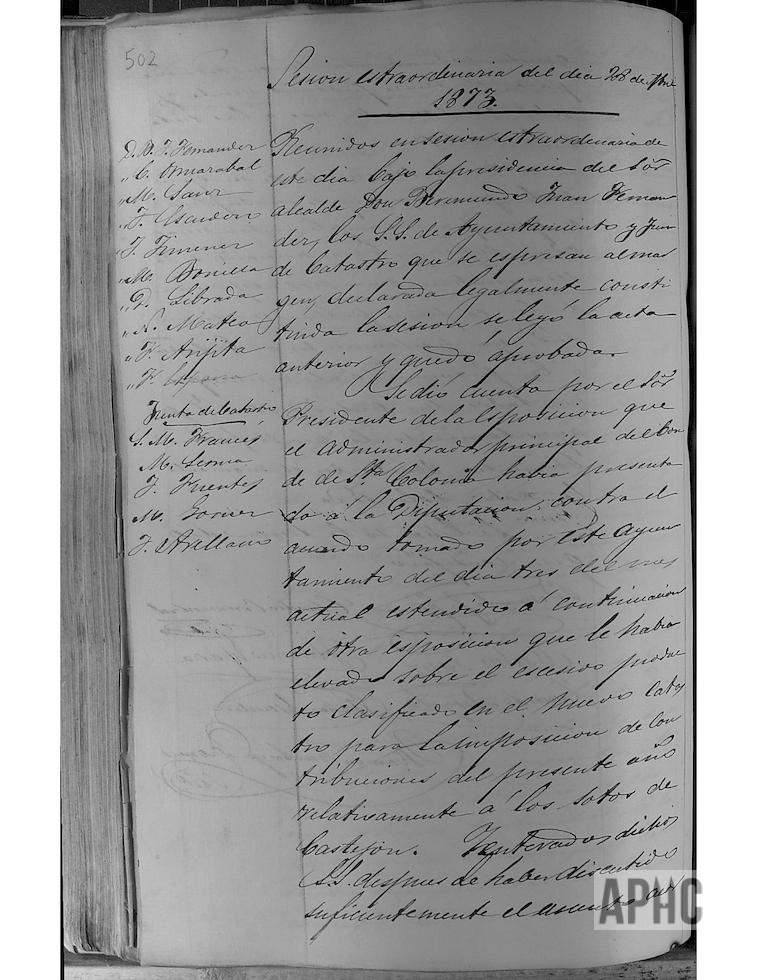 502
Sesion estraordinaria del dia 28 de
1873.
D. B. J. Fernandez
" C. Amarabal
" M. Sanz
" F. Escudero
" J. Jimenez
" M. Bonilla
" D. Librada
" N. Mateo
" F. Arijita
" F. España
Junta de Catastro
S. M. Francés
M. Lerma
J. Fuentes
M. Gomez
J. Arellano
Reunidos en sesion estraordinaria de
este dia bajo la presidencia del Sõr
alcalde Don Beremundo Juan Fernan
dez, los S.S. de Ayuntamiento y Jun
de Catastro que se espresan al mar
gen, declarada legalmente consti
tuida la sesion se leyó la acta
anterior y quedó aprobada.
Se dió cuenta por el Sõr
Presidente de la Esposicion que
el Administrador principal del Con
de de Sta Coloma habia presenta
do á la Diputacion contra el
acuerdo tomado por este Ayun
tamiento del dia tres del mes
actual estendido á continuacion
de otra esposicion que le habia
elevado sobre el escesivo produc
to clasificado en el nuevo catas
tro para la imposicion de Con
tribuciones del presente año
relativamente á los sotos de
Castejon. Enterados dichos
S.S. despues de haber discutido
suficientemente el asunto
APHC